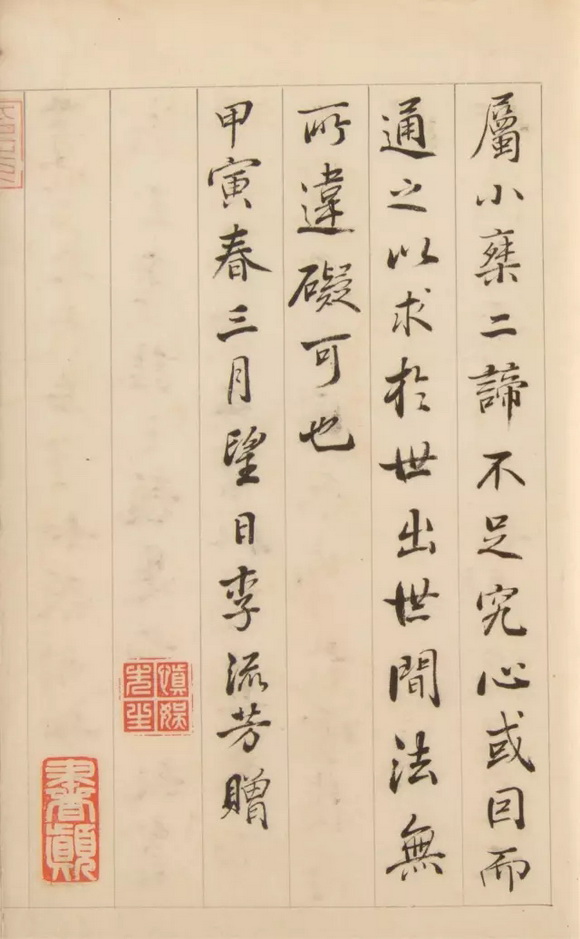 屬小乘二諦不足究心或因而
通之以求於世出世間法無
所違礙可也
甲寅春三月望日李流芳贈
慎娛
先生
書顛